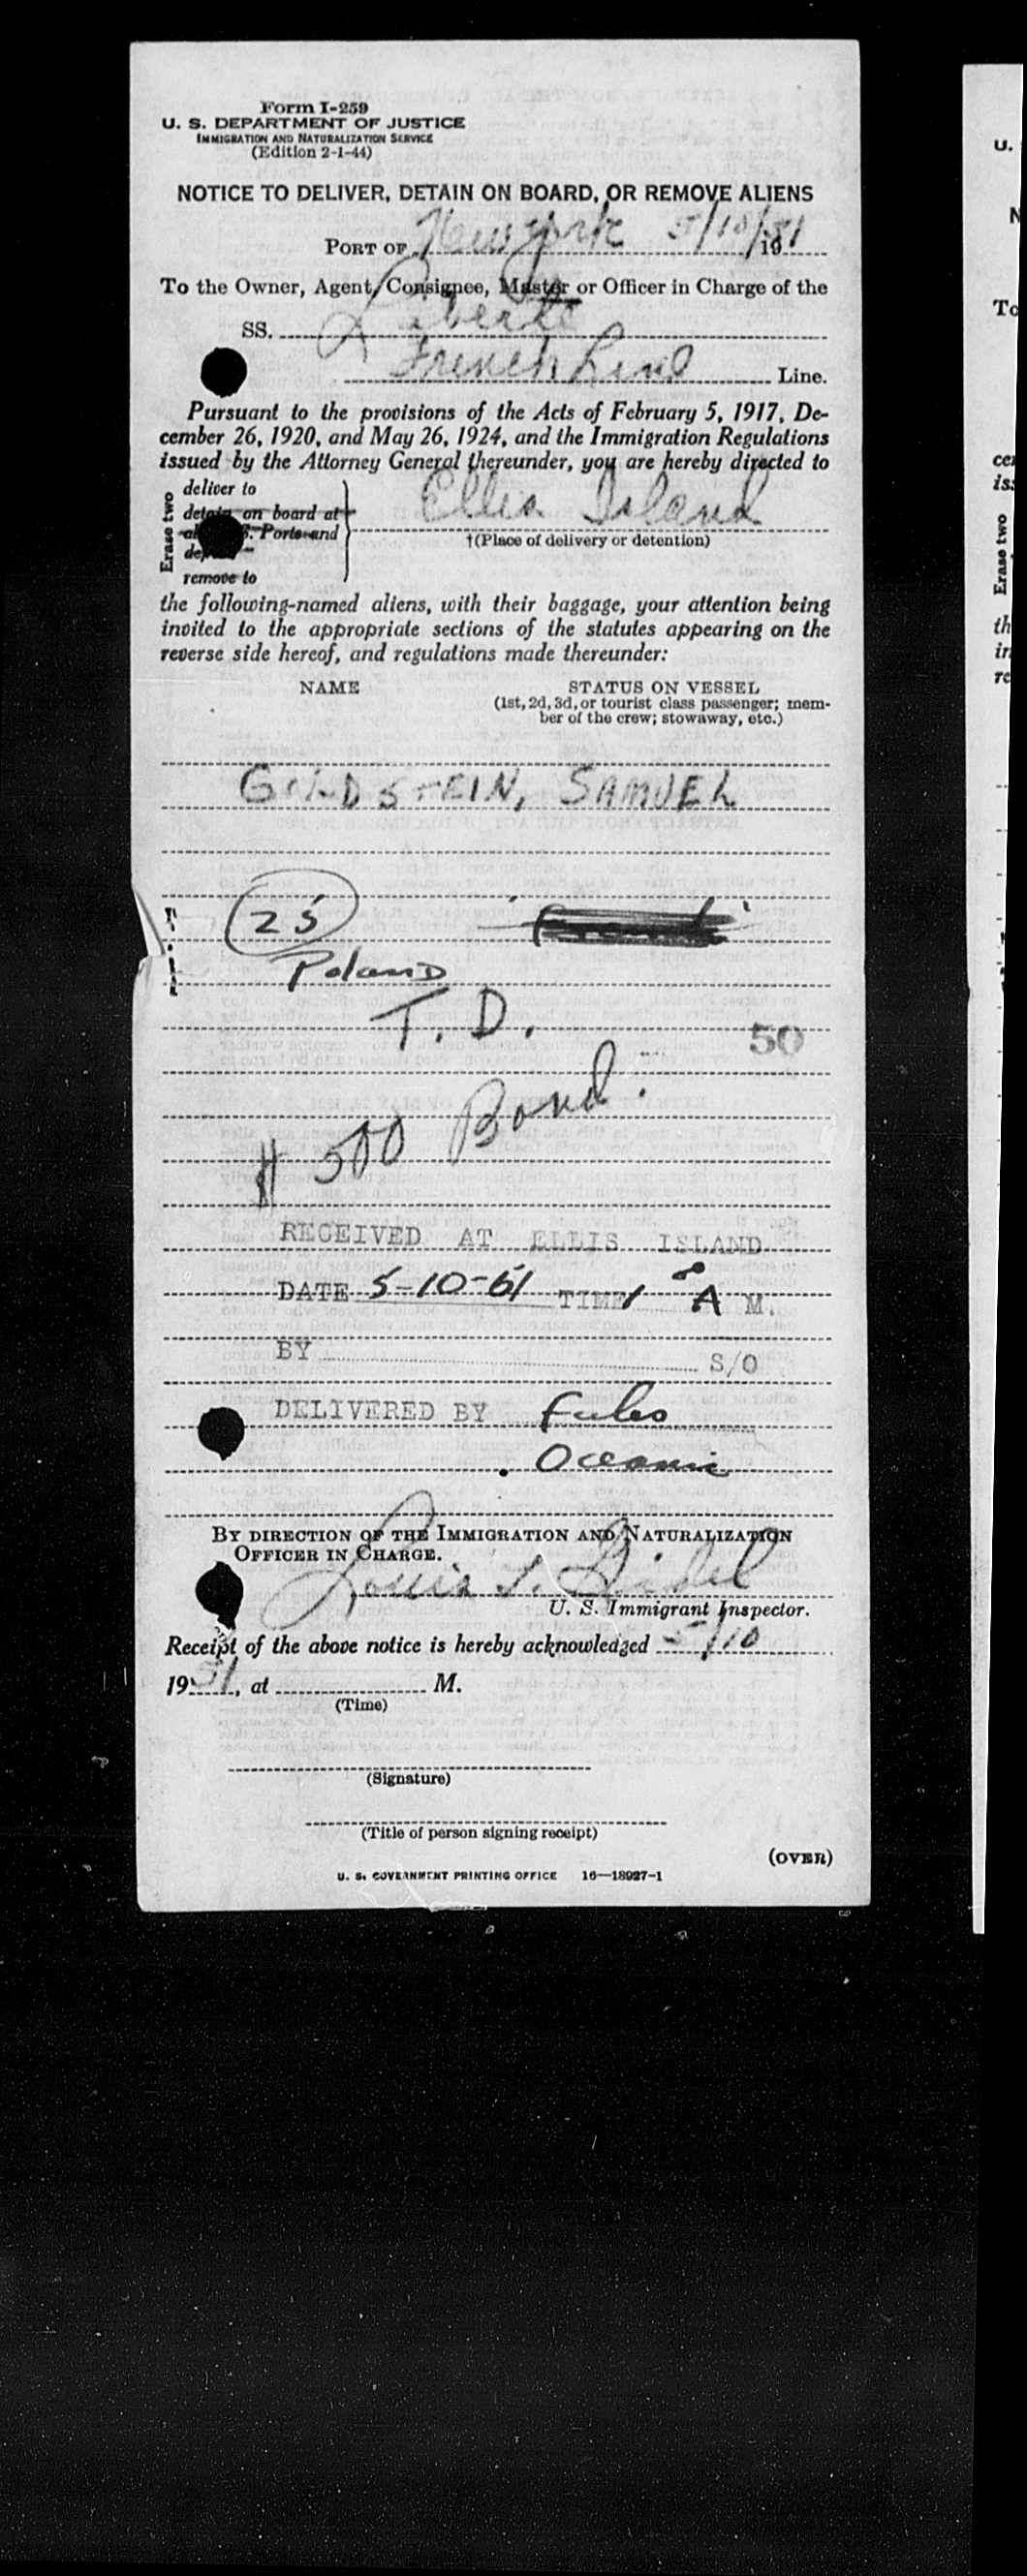 Form I-259
U. S. DEPARTMENT OF JUSTICE
IMMIGRATION AND NATURALIZATION SERVICE
(Edition 2-1-44)
NOTICE TO DELIVER, DETAIN ON BOARD, OR REMOVE ALIENS
PORT OF New York 5/10/1951
To the Owner, Agent, Consignee, Master or Officer in Charge of the
SS. Liberte
French Line Line.
Pursuant to the provisions of the Acts of February 5, 1917, De-
cember 26, 1920, and May 26, 1924, and the Immigration Regulations
issued by the Attorney General thereunder, you are hereby directed to
Erase two
deliver to
detain on board at
Ports and
remove to
Ellis Island
†(Place of delivery or detention)
the following-named aliens, with their baggage, your attention being
invited to the appropriate sections of the statutes appearing on the
reverse side hereof, and regulations made thereunder:
NAME STATUS ON VESSEL
(1st, 2d, 3d, or tourist class passenger; mem-
ber of the crew; stowaway, etc.)
GOLDSTEIN, SAMUEL
25
Poland
T. D.
50
$ 500 Bond.
RECEIVED AT ELLIS ISLAND
DATE 5-10-51 TIME 1 A M.
BY S/O
DELIVERED BY
Oceanic
BY DIRECTION OF THE IMMIGRATION AND NATURALIZATION
OFFICER IN CHARGE.
Louis
U. S. Immigrant Inspector.
Receipt of the above notice is hereby acknowledged 5/10
1951, at M.
(Time)
(Signature)
(Title of person signing receipt)
(OVER)
U. S. GOVERNMENT PRINTING OFFICE 16—18927-1
U.
N
To
Erase two
th